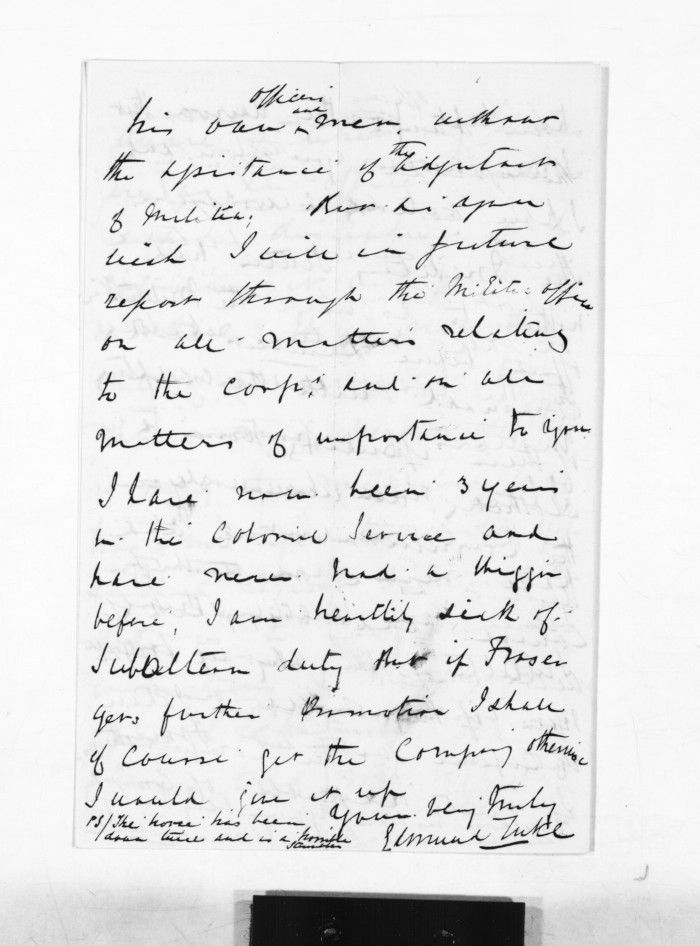 officers
and
his own men without
the assistance of the Adjutant
of Militia; But if you
wish I will in future
report through the Militia office
on all matters relating
to the corps; and on all
matters of importance to you.
I have now been 3 years
in the Colonial Service and
have never had a wiggin
before, I am heartily sick of
Subaltern duty but if Fraser
gets further Promotion I shall
of course get the Company otherwise
I would give it up
Yours very truly
Edmund Tuke
PS/ The horse has been
down there and is a horrible